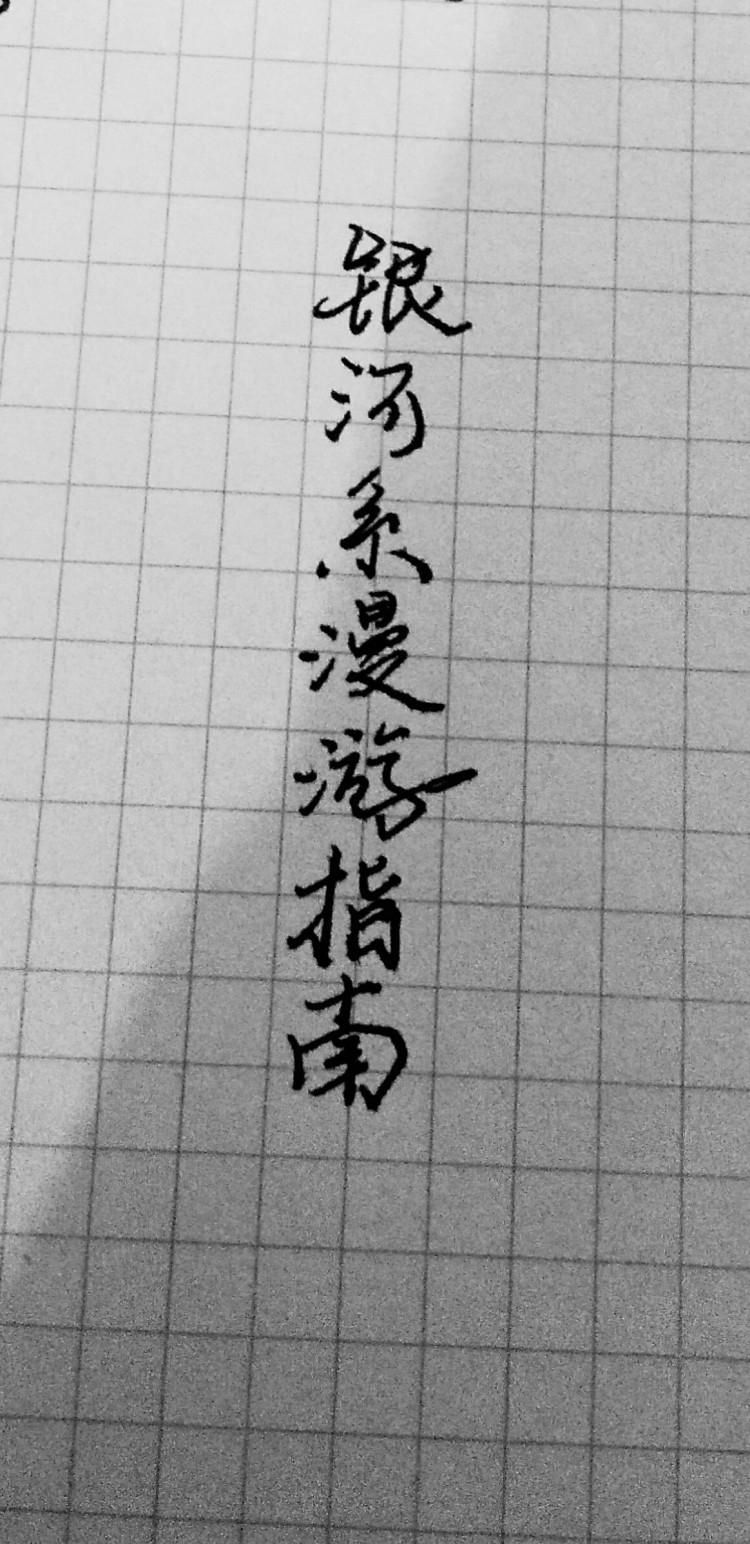 银河系漫游指南